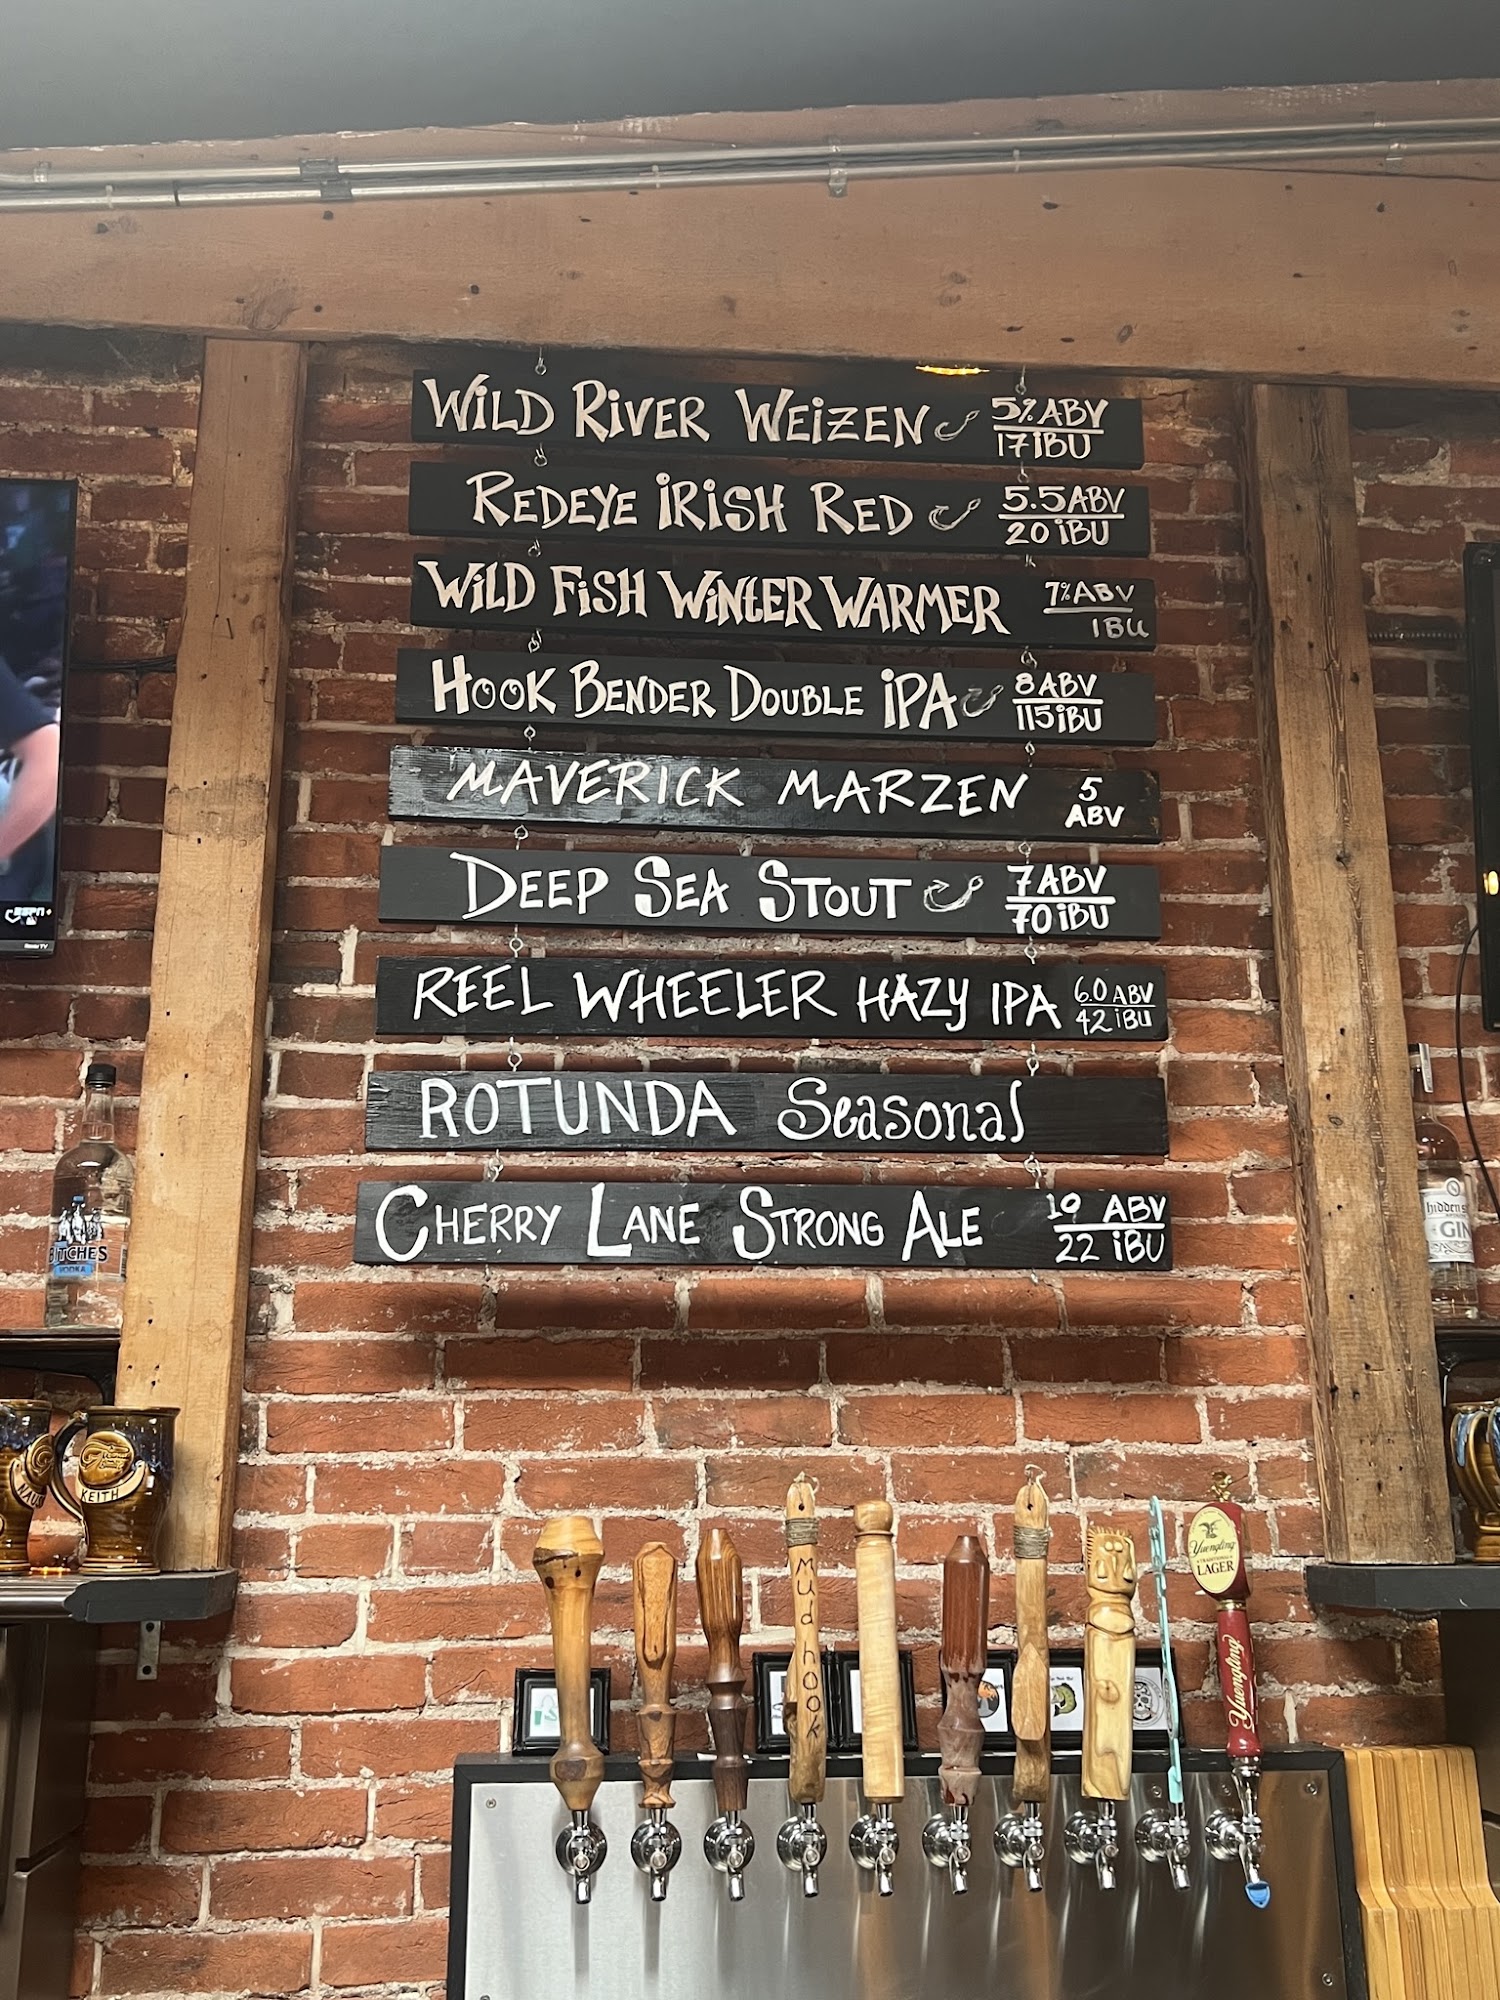 WiLD RiVER WEiZEN 5% ABV
17 iBU
REDEYE iRiSH RED 5.5 ABV
20 iBU
WiLD FiSH WiNtER WARMER 7% ABV
IBU
HOOK BENDER DOUBLE iPA 8 ABV
115 iBU
MAVERICK MARZEN 5
ABV
DEEP SEA STOUT 7 ABV
70 iBU
REEL WHEELER HAZY IPA 6.0 ABV
42 iBU
ROTUNDA Seasonal
CHERRY LANE STRONG ALE 10 ABV
22 iBU
ESPN+
Roku TV
BITCHES
VODKA
hidden
GIN
KEITH
mudhook
Yuengling
TRADITIONAL
LAGER
Yuengling